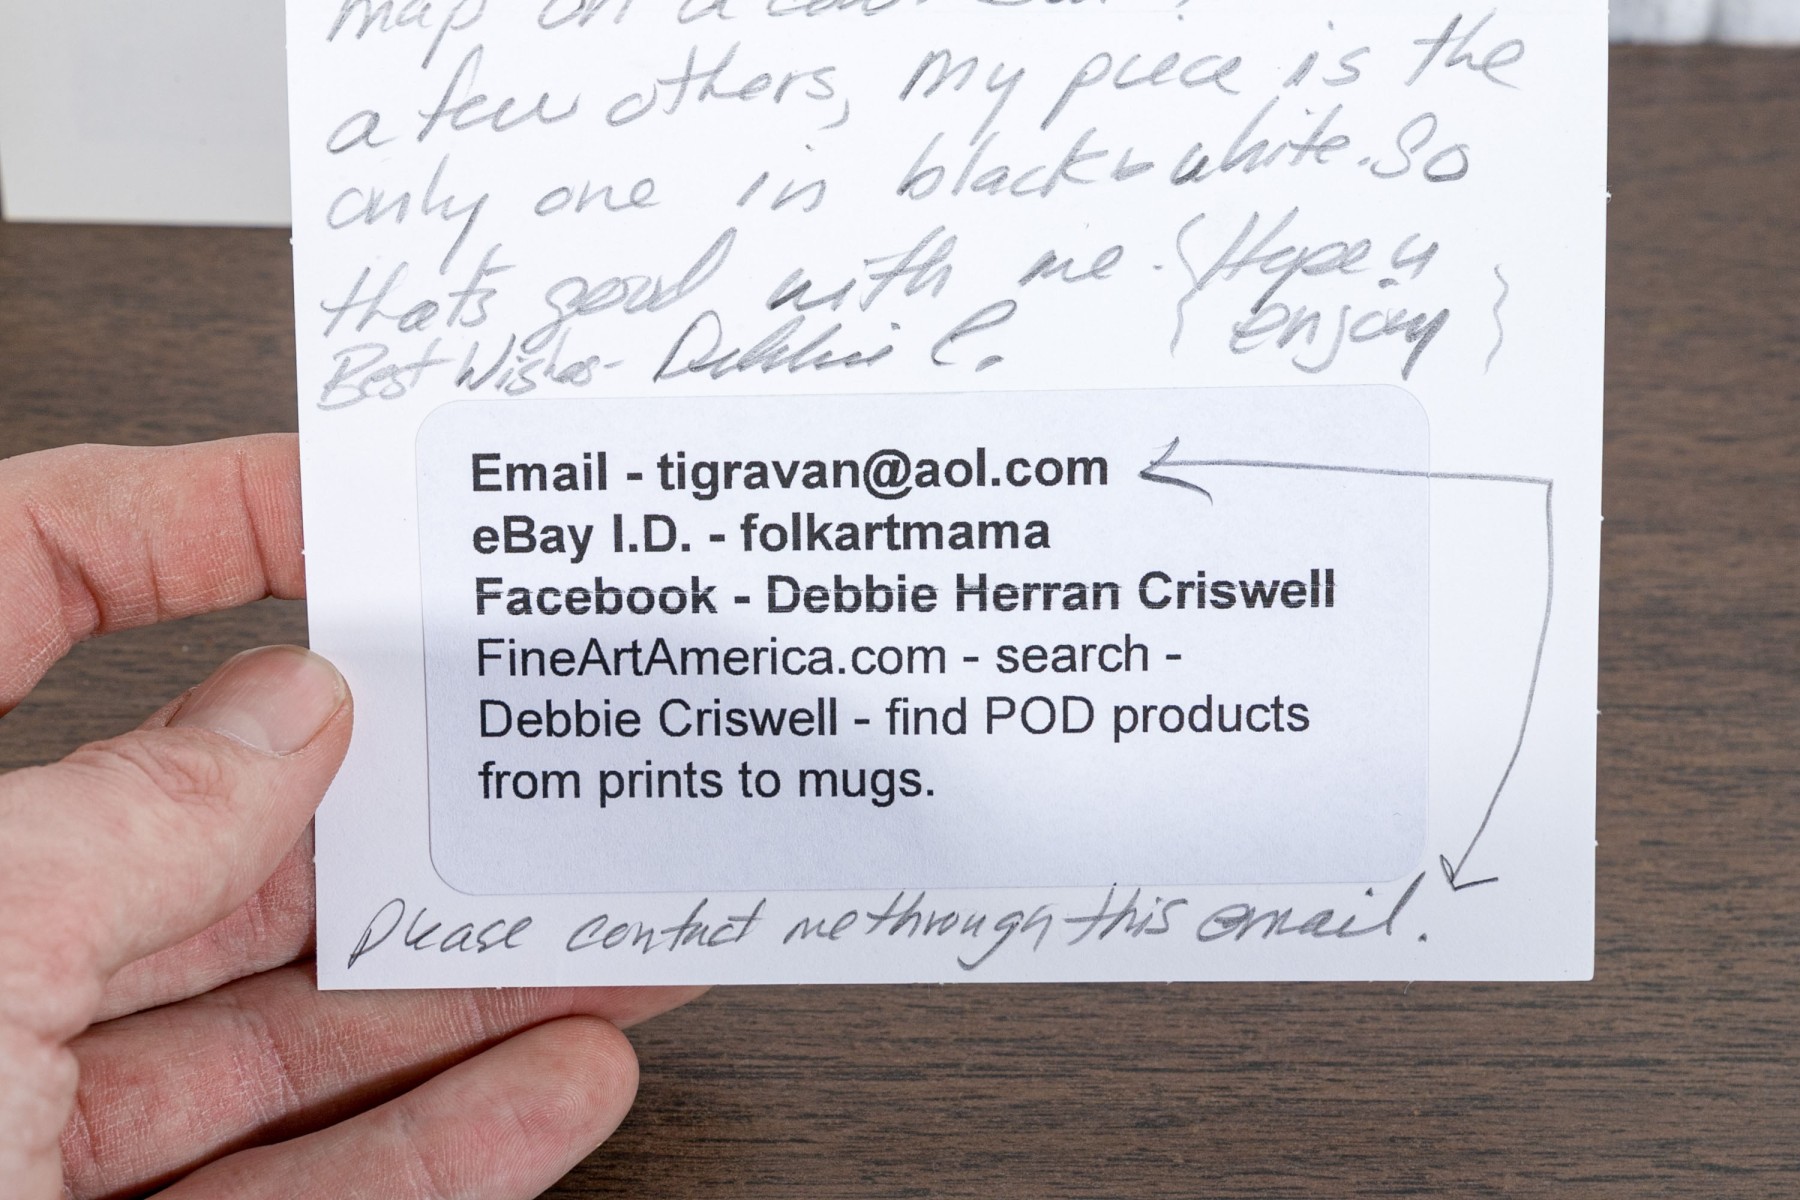 map on a
a few others, My piece is the
only one in black & white. So
that's good with me. {Hope u
enjoy}
Best Wishes - Debbie C.
Email - tigravan@aol.com
eBay I.D. - folkartmama
Facebook - Debbie Herran Criswell
FineArtAmerica.com - search -
Debbie Criswell - find POD products
from prints to mugs.
Please contact me through this email.